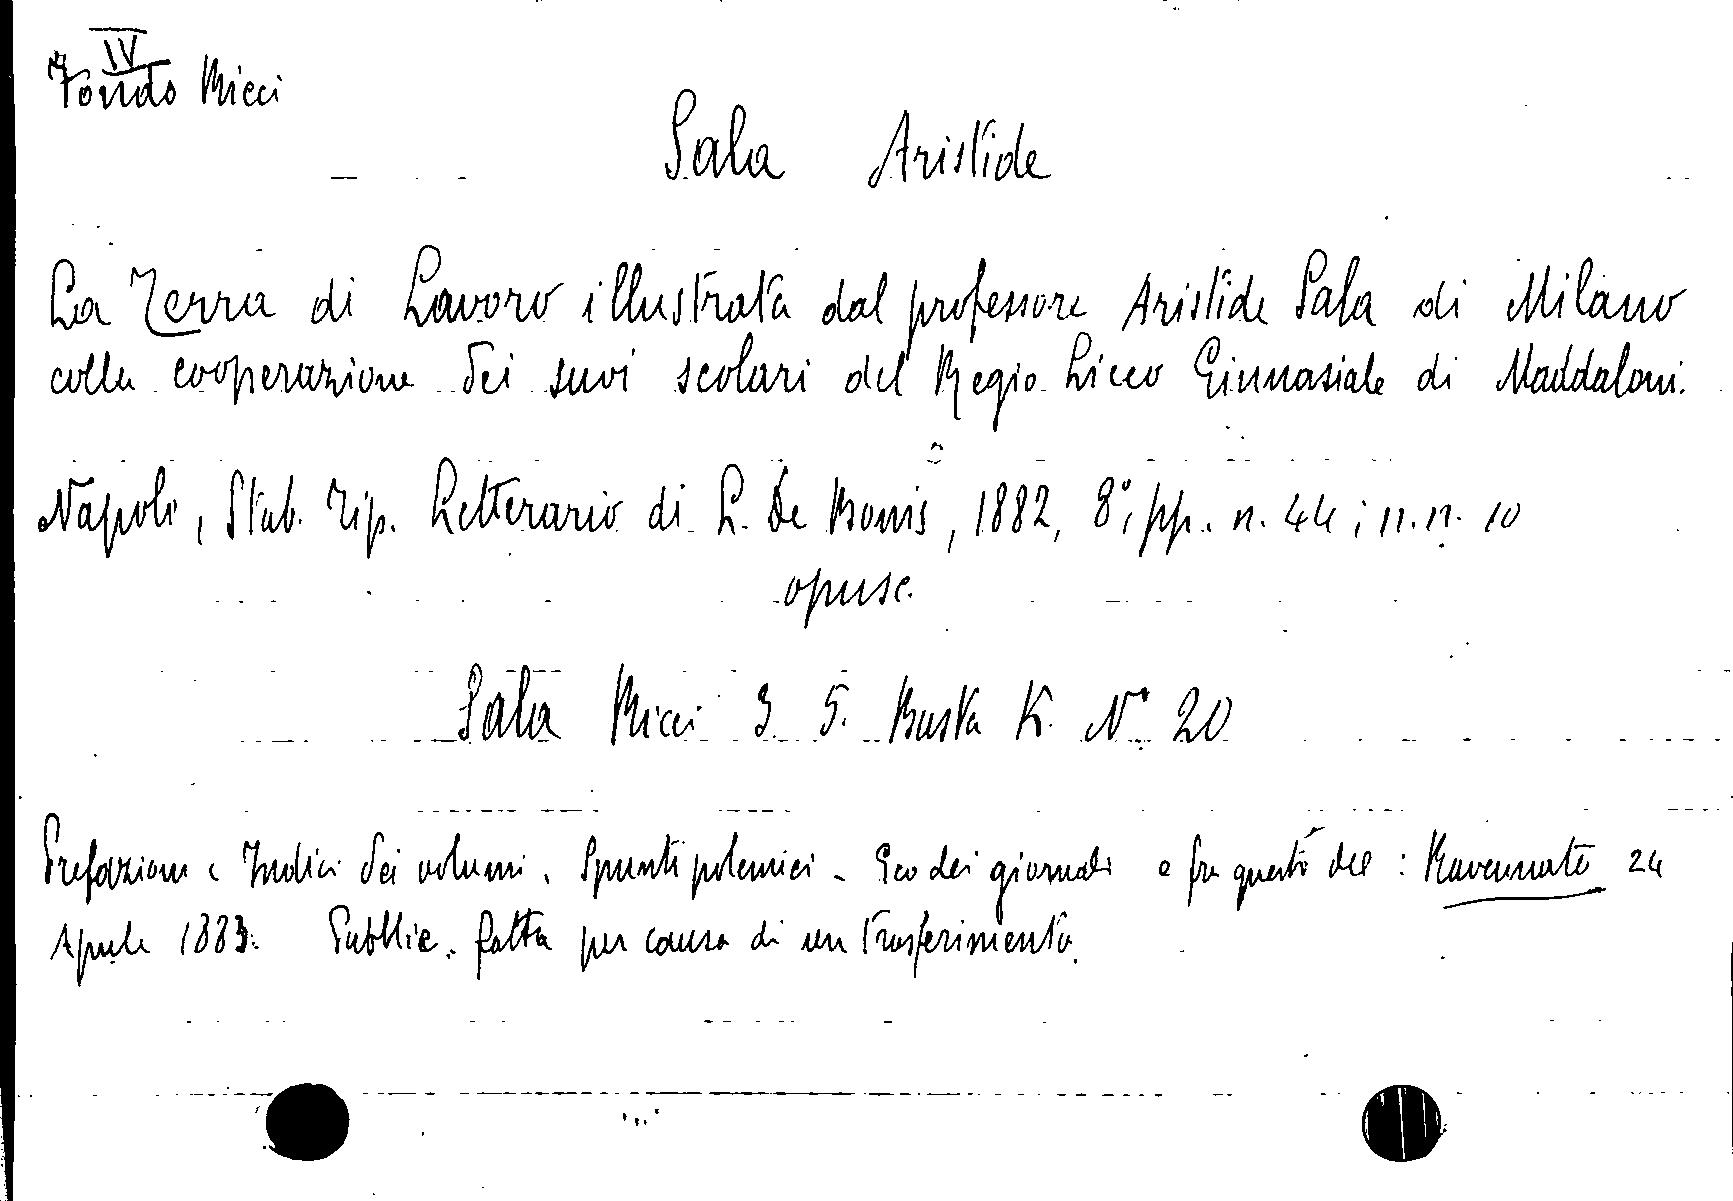 IV
Fondo Ricci
Sala Aristide
La Terra di Lavoro illustrata dal professore Aristide Sala di Milano
colla cooperazione dei suoi scolari del Regio Liceo Ginnasiale di Maddaloni.
Napoli, Stab. Tip. Letterario di L. De Bonis, 1882, 8°; pp. n. 44; n.n. 10
opusc.
Sala Ricci 3 5. Busta K. N° 20
Prefazione e Indici dei volumi. Spunti polemici - Eco dei giornali e fra questi del: Ravennate 24
Aprile 1883. Pubblic. fatta per causa di un trasferimento.